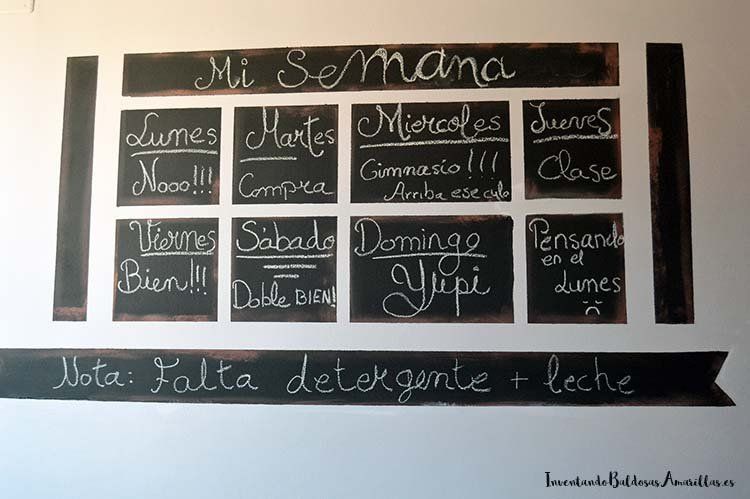 Mi Semana
Lunes
Nooo!!!
Martes
Compra
Miercoles
Gimnasio!!!
Arriba ese culo
Jueves
Clase
Viernes
Bien!!!
Sábado
Doble BIEN!
Domingo
Yupi
Pensando
en el
Lunes
Nota: Falta detergente + leche
InventandoBaldosasAmarillas.es